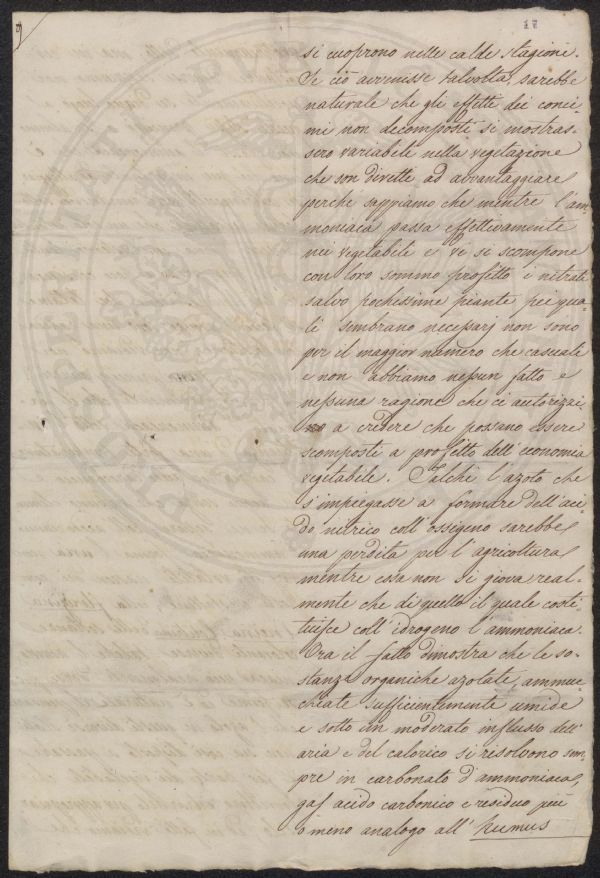 17
si cuoprono nelle calde stagioni.
Se ciò avvenisse talvolta, sarebbe
naturale che gli effetti dei conci-
mi non decomposti si mostras-
sero variabili nella vegetazione
che son diretti ad avvantaggiare
perchè sappiamo che mentre l'am
moniaca passa effettivamente
nei vegetabili e vi si scompone
con loro sommo profitto i nitrati
salvo pochissime piante per qua-
li sembrano necessarj non sono
per il maggior numero che casuali
e non abbiamo nessun fatto e
nessuna ragione che ci autorizzi-
no a credere che possano essere
scomposti a profitto dell'economia
vegetabile. Talchè l'azoto che
s'impiegasse a formare dell'aci-
do nitrico coll'ossigeno sarebbe
una perdita per l'agricoltura
mentre essa non si giova real-
mente che di quello il quale costi-
tuisce coll'idrogeno l'ammoniaca.
Ora il fatto dimostra che le so-
stanze organiche azotate, ammuc-
chiate sufficientemente umide
e sotto un moderato influsso dell'
aria e del calorico si risolvono sem-
pre in carbonato d'ammoniaca,
gas acido carbonico e residuo più
o meno analogo all'humus